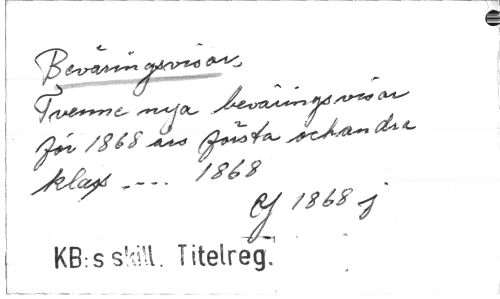 Beväringsvisor,
Tvenne nya beväringsvisor
för 1868 års första och andra
klass .... 1868
Cy 1868 j
KB:s skill. Titelreg.